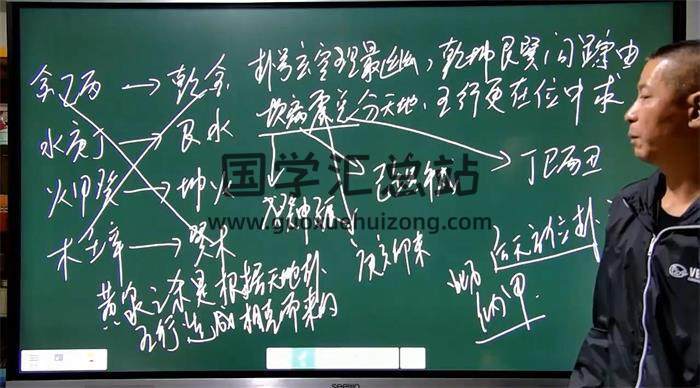 金乙丙 → 乾金
水庚丁 → 艮水
火甲癸 → 坤火
木壬辛 → 巽木
卦号玄空理最幽，乾坤艮巽问踪由
坎离震兑分天地，五行更在位中求
丁巳酉丑
黄泉之杀是根据天地卦
五行生尅相克而来的
后天方位卦
纳甲
国学汇总站
www.guoxuehuizong.com
seewo